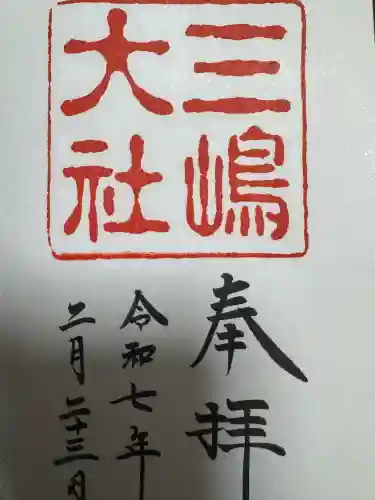 三嶋
大社
奉拝
令和七年
二月二十三日